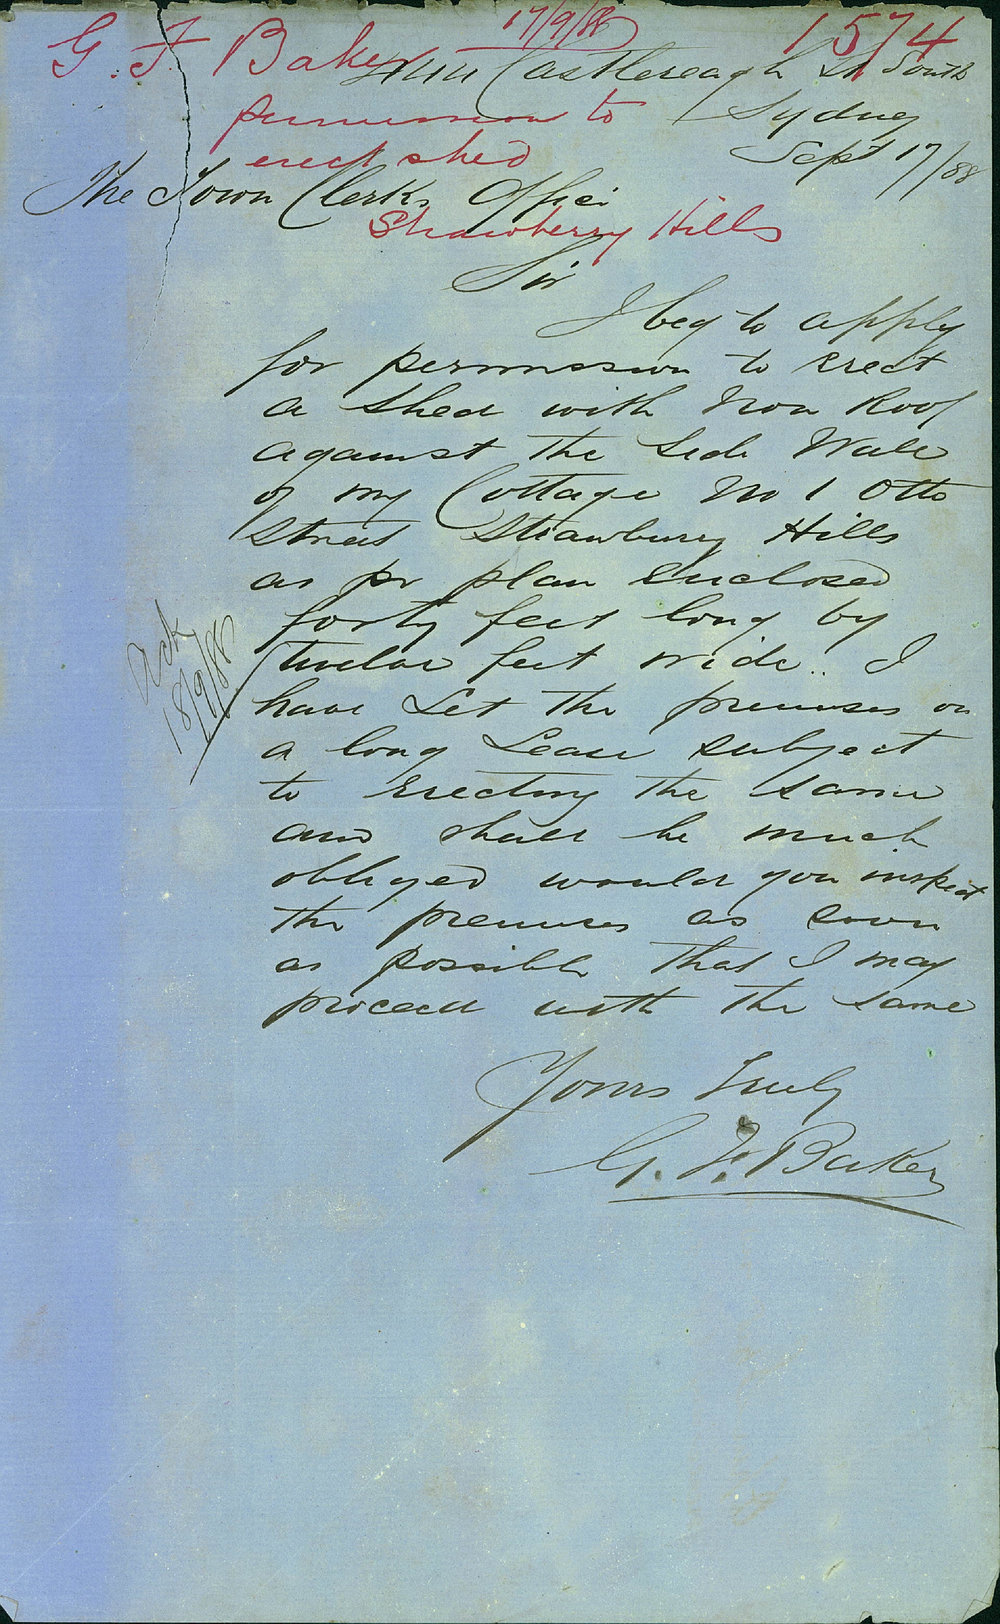 17/9/88
1574
G. F. Baker
Castlereagh St South
permission to
Sydney
erect shed
Sept 17/88
The Town Clerks Office
Strawberry Hills
Sir
I beg to apply
for permission to erect
a shed with Iron Roof
against the Side Wall
of my Cottage No 1 Otto
Street Strawberry Hills
as pr plan Enclosed
forty feet long by
twelve feet wide.. I
have Let the premises on
a long Lease subject
to Erecting the same
and shall be much
obliged would you inspect
the premises as soon
as possible that I may
proceed with the same
Ack
18/9/88
Yours truly
G. F. Baker